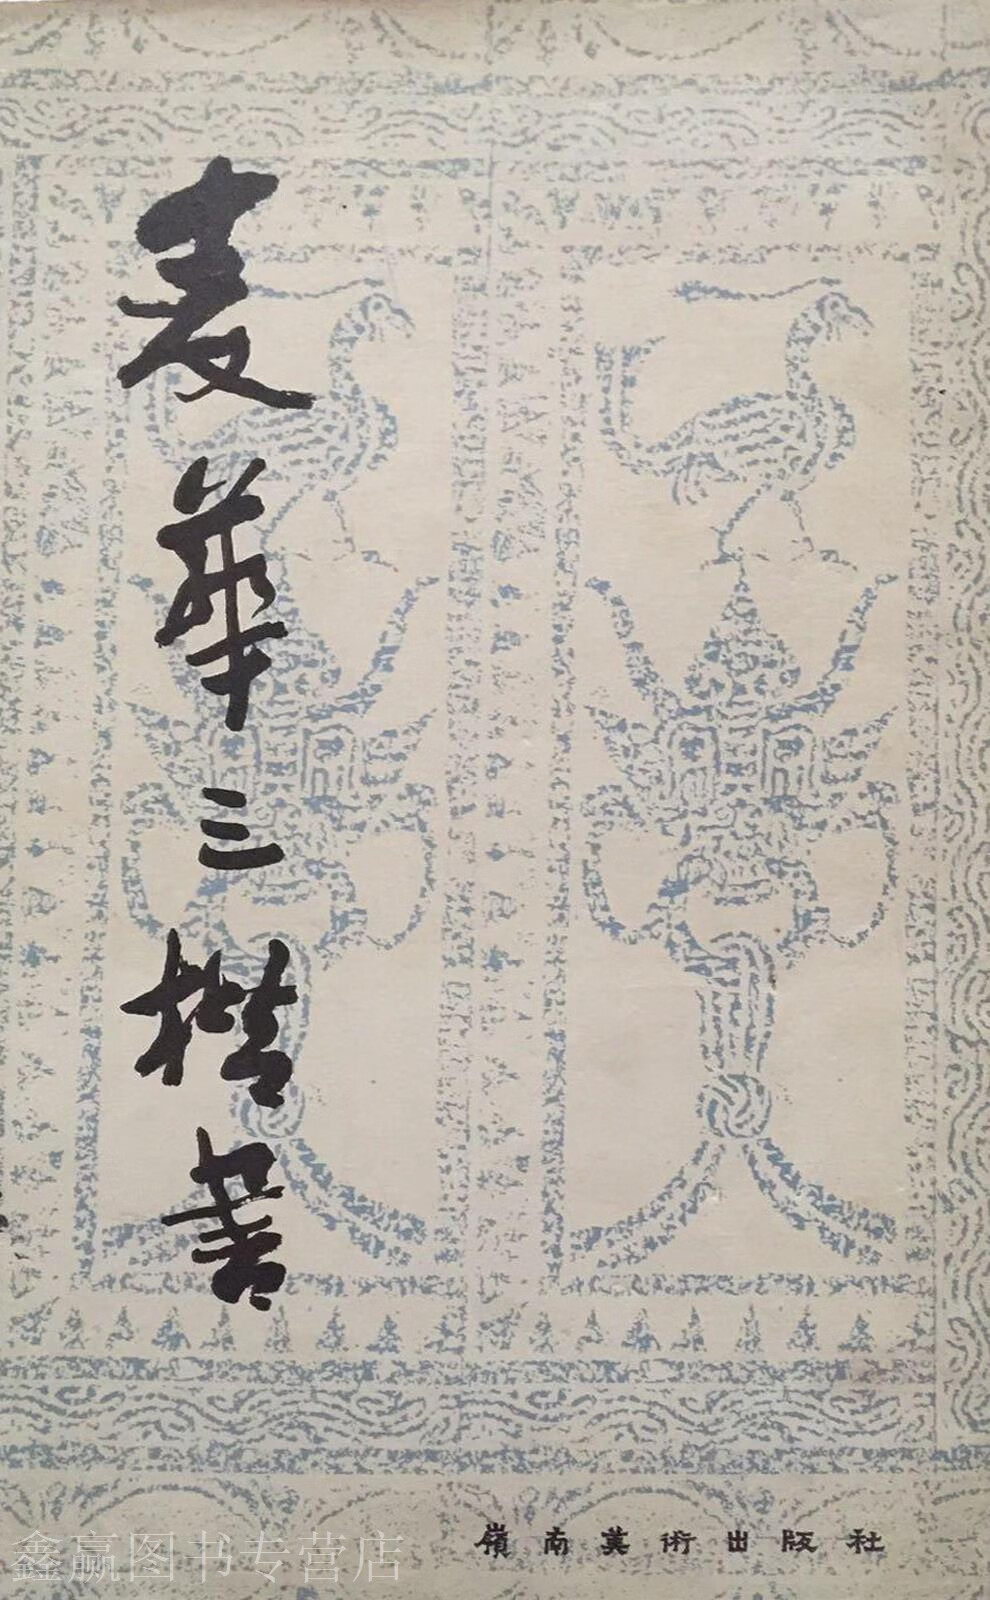 麦華三楷書
嶺南美術出版社
鑫赢图书专营店